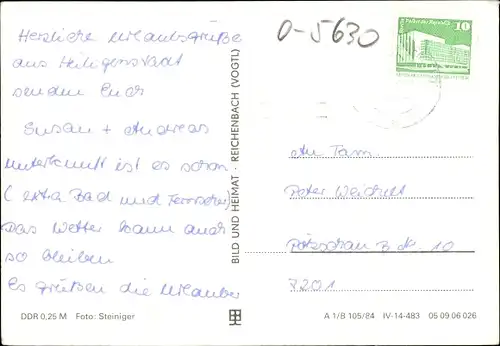 Herzliche Urlaubsgrüße
aus Heiligenstadt
senden Euch
Susan + Andreas
Unterkunft ist es schon
( extra Bad und Fernseher)
Das Wetter kann auch
so bleiben
Es grüßen die Urlauber
DDR 0,25 M Foto: Steiniger
BILD UND HEIMAT · REICHENBACH (VOGTL)
0-5630
10
An Fam
Peter
10
7201
A 1/B 105/84 IV-14-483 05 09 06 026